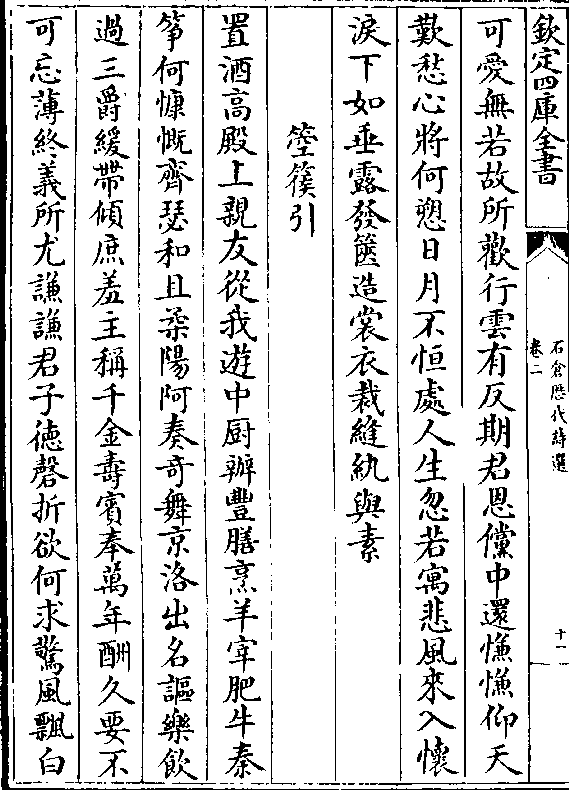 欽定四庫全書
石倉歴代詩選
卷二
十一
可愛無若故所歡行雲有反期君恩儻中還慊慊仰天
歎愁心將何愬日月不恒處人生忽若寓悲風來入懷
淚下如垂露發篋造裳衣裁縫紈與素
箜篌引
置酒高殿上親友從我遊中厨辦豐膳烹羊宰肥牛秦
筝何慷慨齊瑟和且柔陽阿奏奇舞京洛出名謳樂飲
過三爵緩帶傾庶羞主稱千金壽賓奉萬年酬久要不
可忘薄終義所尤謙謙君子德磬折欲何求驚風飄白